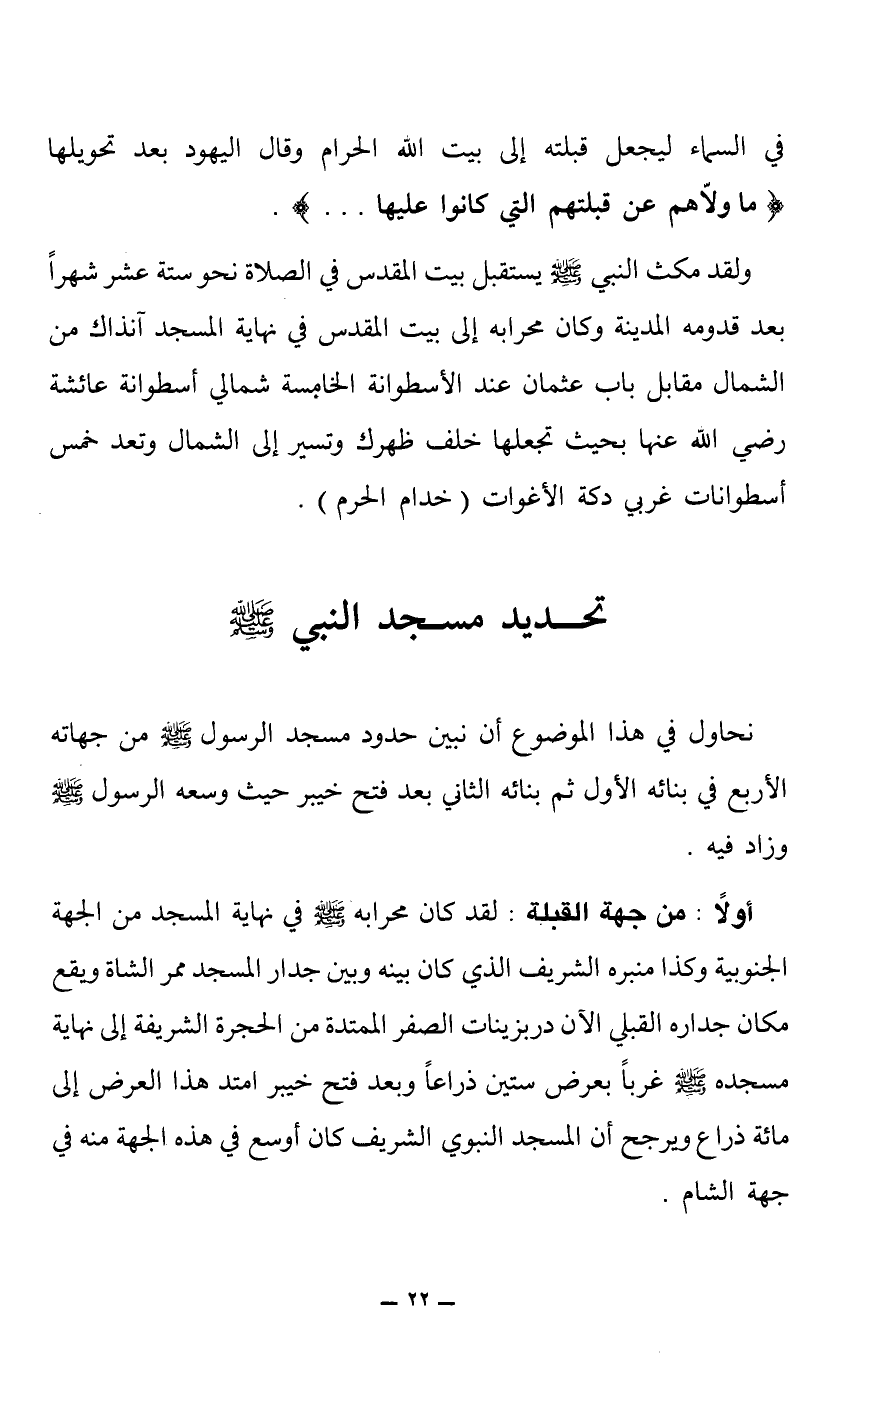 في السماء ليجعل قبلته إلى بيت الله الحرام وقال اليهود بعد تحويلها
﴿ ما ولاّهم عن قبلتهم التي كانوا عليها . . . ﴾ .
ولقد مكث النبي ﷺ يستقبل بيت المقدس في الصلاة نحو ستة عشر شهراً
بعد قدومه المدينة وكان محرابه إلى بيت المقدس في نهاية المسجد آنذاك من
الشمال مقابل باب عثمان عند الأسطوانة الخامسة شمالي أسطوانة عائشة
رضي الله عنها بحيث تجعلها خلف ظهرك وتسير إلى الشمال وتعد خمس
أسطوانات غربي دكة الأغوات ( خدام الحرم ) .
تحـديد مسـجد النبي ﷺ
نحاول في هذا الموضوع أن نبين حدود مسجد الرسول ﷺ من جهاته
الأربع في بنائه الأول ثم بنائه الثاني بعد فتح خيبر حيث وسعه الرسول ﷺ
وزاد فيه .
أولاً : من جهة القبلة : لقد كان محرابه ﷺ في نهاية المسجد من الجهة
الجنوبية وكذا منبره الشريف الذي كان بينه وبين جدار المسجد ممر الشاة ويقع
مكان جداره القبلي الآن دربزينات الصفر الممتدة من الحجرة الشريفة إلى نهاية
مسجده ﷺ غرباً بعرض ستين ذراعاً وبعد فتح خيبر امتد هذا العرض إلى
مائة ذراع ويرجح أن المسجد النبوي الشريف كان أوسع في هذه الجهة منه في
جهة الشام .
ـ ٢٢ ـ